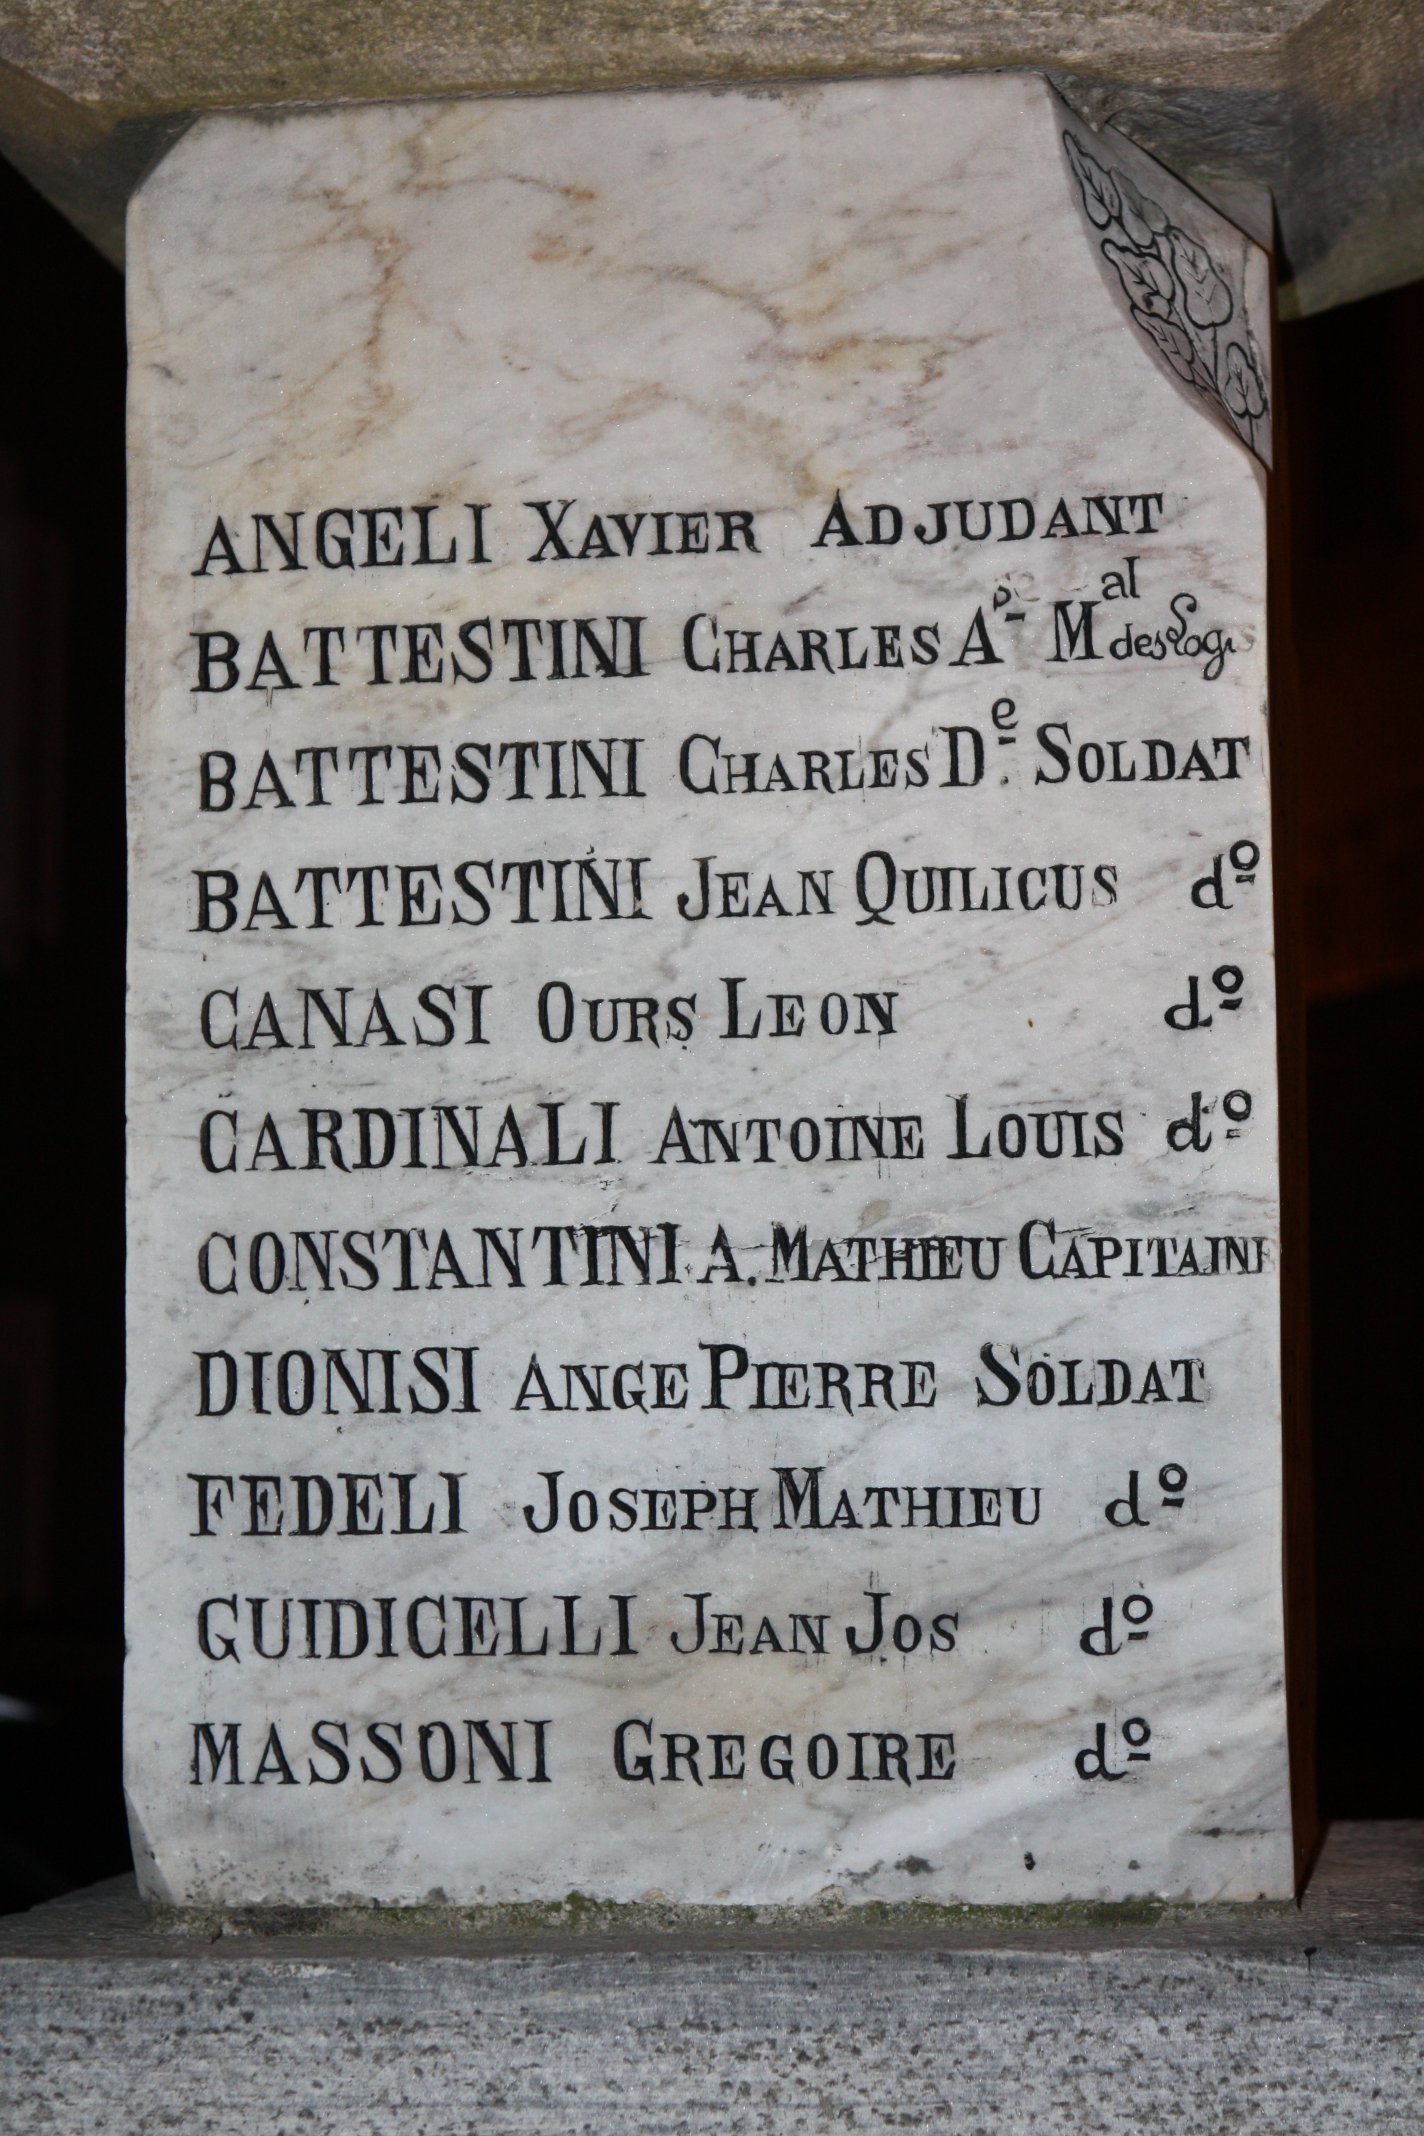 ANGELI XAVIER ADJUDANT
BATTESTINI CHARLES Ase Mal des Logis
BATTESTINI CHARLES De. SOLDAT
BATTESTINI JEAN QUILICUS dº
CANASI OURS LEON dº
CARDINALI ANTOINE LOUIS dº
CONSTANTINI A. MATHIEU CAPITAINE
DIONISI ANGE PIERRE SOLDAT
FEDELI JOSEPH MATHIEU dº
GUIDICELLI JEAN JOS dº
MASSONI GREGOIRE dº